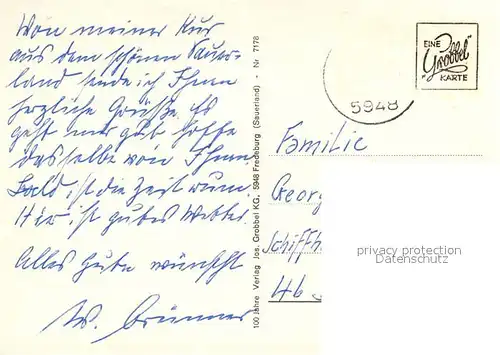 Von meiner Kur
aus dem schönen Sauer-
land sende ich Ihnen
herzliche Grüße. Es
geht mir gut hoffe
dasselbe von Ihnen
Bald ist die Zeit rum.
Hier ist gutes Wetter.
Alles Gute wünscht
W. Brünner
100 Jahre Verlag Jos. Grobbel KG, 5948 Fredeburg (Sauerland) - Nr 7178
EINE
"Grobbel"
KARTE
5948
Familie
Georg
Schiffh
46
privacy protection
Datenschutz